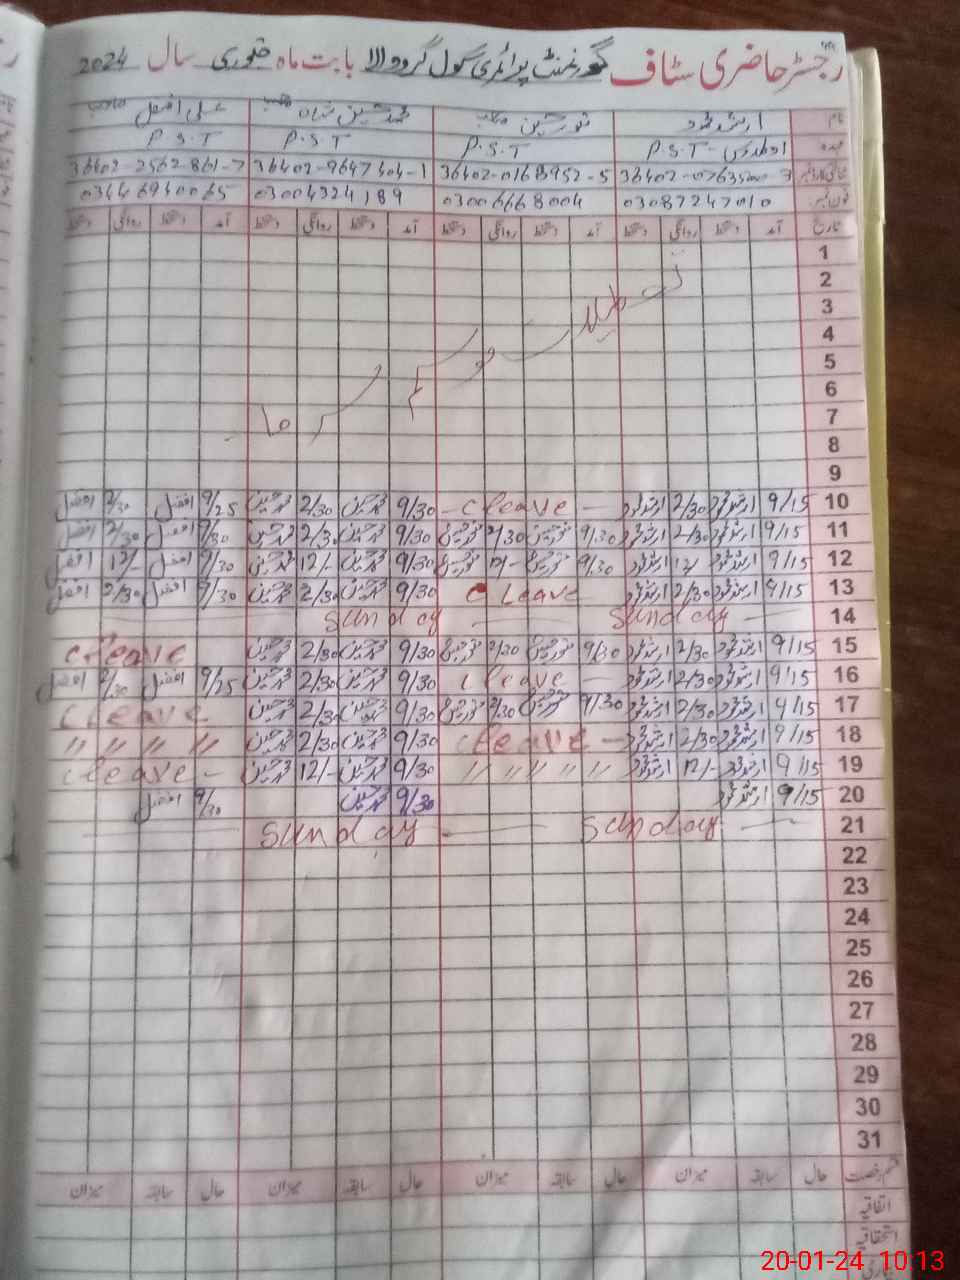 رجسٹر حاضری سٹاف گورنمنٹ پرائمری سکول گرووالا بابت ماہ جنوری سال 2024
نام ارشد محمود نور حسین صاحب محمد حسین شاہ صاحب علی افضل صاحب
عہدہ P.S.T P.S.T P.S.T P.S.T
36402-0168952-5 36402-9647404-1 36402-2562861-7
فون نمبر 03087247010 03006668004 03004324189 03446940065
تاریخ آمد دستخط روانگی دستخط آمد دستخط روانگی دستخط آمد دستخط روانگی دستخط آمد دستخط روانگی دستخط
1
2
3
4
5
6
7
8
9
تعطیلات موسم سرما
10 9/15 ارشد محمود 2/30 ارشد محمود - Cleave - 9/30 محمد حسین 2/30 محمد حسین 9/25 افضل 2/30 افضل
11 9/15 ارشد محمود 2/30 ارشد محمود 9/30 نور حسین 2/30 نور حسین 9/30 محمد حسین 2/30 محمد حسین 9/30 افضل 2/30 افضل
12 9/15 ارشد محمود 12/ ارشد محمود 9/30 نور حسین 12/- نور حسین 9/30 محمد حسین 12/- محمد حسین 9/30 افضل 12/- افضل
13 9/15 ارشد محمود 2/30 ارشد محمود C Leave 9/30 محمد حسین 2/30 محمد حسین 9/30 افضل 2/30 افضل
14 Sunday Sunday
15 9/15 ارشد محمود 2/30 ارشد محمود 9/30 نور حسین 2/30 نور حسین 9/30 محمد حسین 2/30 محمد حسین Cleave
16 9/15 ارشد محمود 2/30 ارشد محمود Cleave - 9/30 محمد حسین 2/30 محمد حسین 9/25 افضل 2/30 افضل
17 9/15 ارشد محمود 2/30 ارشد محمود 9/30 نور حسین 2/30 نور حسین 9/30 محمد حسین 2/30 محمد حسین Cleave
18 9/15 ارشد محمود 2/30 ارشد محمود Cleave - 9/30 محمد حسین 2/30 محمد حسین // // // //
19 9/15 ارشد محمود 12/- ارشد محمود // // // // // 9/30 محمد حسین 12/- محمد حسین Cleave -
20 9/15 ارشد محمود 9/30 محمد حسین 9/30 افضل
21 Sunday Sunday
22
23
24
25
26
27
28
29
30
31
قسم رخصت حال سابقہ میزان حال سابقہ میزان حال سابقہ میزان حال سابقہ میزان
اتفاقیہ
استحقاقیہ
20-01-24 10:13